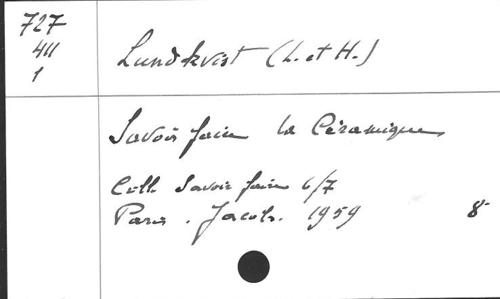 727
411
1
Lundkvist (L. et H.)
Savoir faire la Céramique
Coll. Savoir faire 6/7
Paris. Jacob. 1959 8°